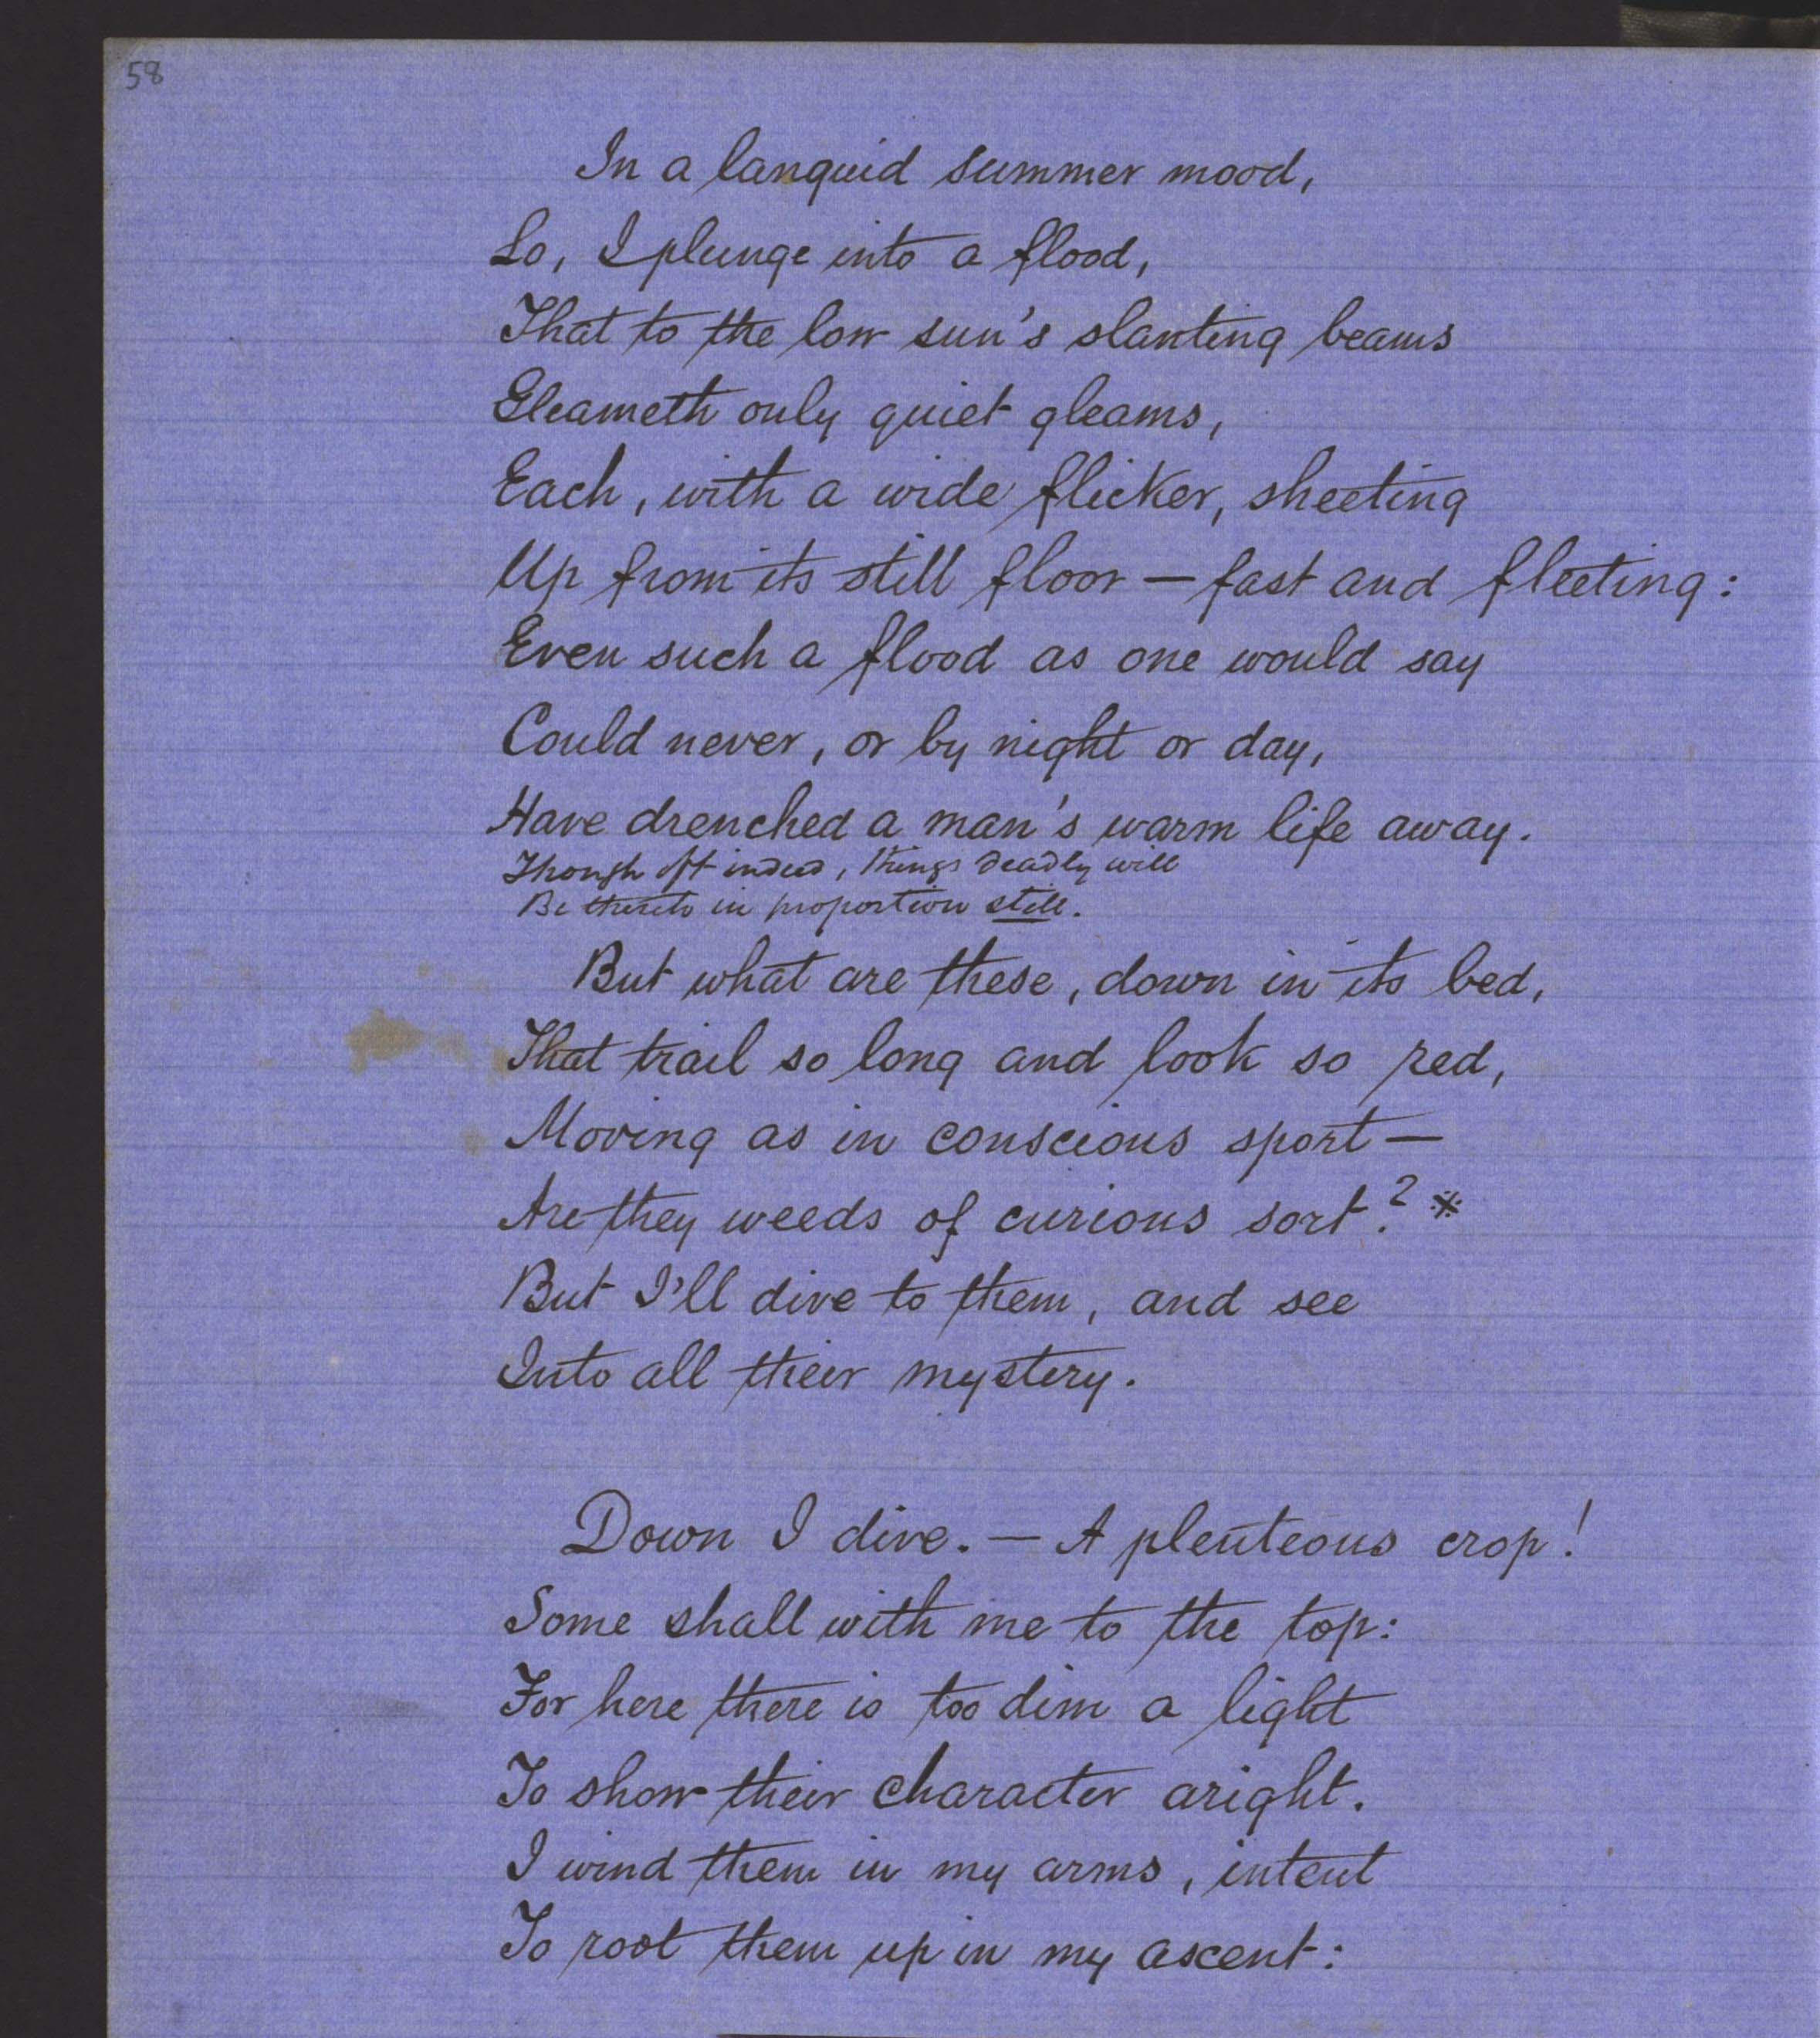 58
In a languid summer mood,
Lo, I plunge into a flood,
That to the low sun's slanting beams
Gleameth only quiet gleams,
Each, with a wide flicker, sheeting
Up from its still floor — fast and fleeting:
Even such a flood as one would say
Could never, or by night or day,
Have drenched a man's warm life away.
Though oft indeed, things deadly will
Be thereto in proportion still.
But what are these, down in its bed,
That trail so long and look so red,
Moving as in conscious sport —
Are they weeds of curious sort? *
But I'll dive to them, and see
Into all their mystery.
Down I dive. — A plenteous crop!
Some shall with me to the top:
For here there is too dim a light
To show their character aright.
I wind them in my arms, intent
To root them up in my ascent: